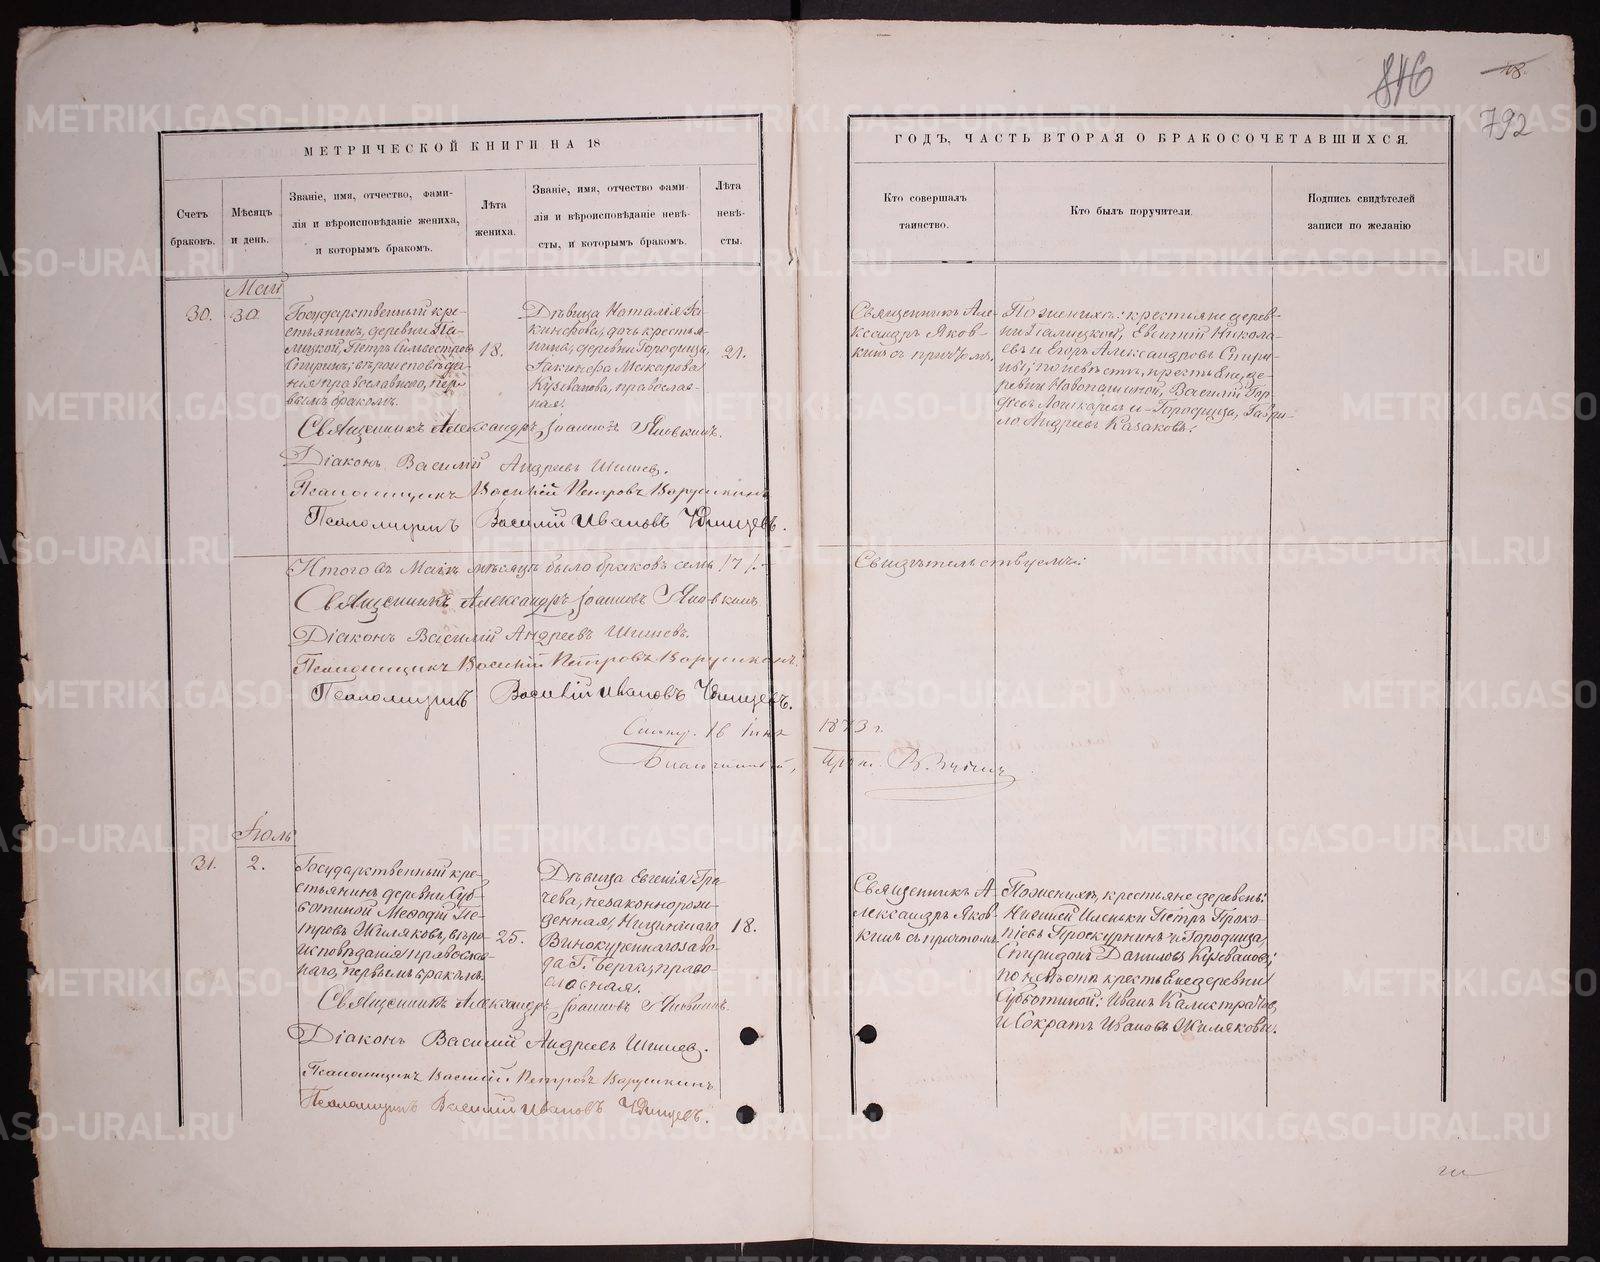 846
18.
792
МЕТРИЧЕСКОЙ КНИГИ НА 18
ГОДЪ, ЧАСТЬ ВТОРАЯ О БРАКОСОЧЕТАВШИХСЯ.
Счетъ
браковъ.
Мѣсяцъ
и день.
Званіе, имя, отчество, фами-
лія и вѣроисповѣданіе жениха,
и которымъ бракомъ.
Лѣта
жениха.
Званіе, имя, отчество фами-
лія и вѣроисповѣданіе невѣ-
сты, и которымъ бракомъ.
Лѣта
невѣ-
сты.
Кто совершалъ
таинство.
Кто былъ поручители.
Подпись свидѣтелей
записи по желанію
Май
30.
30
Государственный кре-
стьянинъ, деревни Га-
лицкой, Петръ Сильвестровъ
Спиринъ; вѣроисповѣда-
нія православнаго, пер-
вымъ бракомъ.
18.
Дѣвица Наталія Іа-
кинфова, дочь крестья-
нина, деревни Городища,
Іакинфа Макарова
Кузеванова, православ-
ная.
21.
Священникъ Але-
ксандръ Яков-
кинъ съ причтомъ.
По женихѣ: крестьяне дерев-
ни Галицкой, Евгений Никола-
евъ и Егоръ Александровъ Спири-
ны; по невѣстѣ, крестьяне, де-
ревни Новопашиной, Василій Гор-
дѣевъ Лошкаревъ и Городища, Гаври-
ло Андреевъ Казаковъ.
Священникъ Александръ Іоанновъ Яковкинъ.
Діаконъ Василій Андреевъ Шишев.
Псаломщикъ Василій Петровъ Варушкинъ
Псаломщикъ Василій Ивановъ
Итого въ Маѣ мѣсяцѣ было браковъ семь /7/.
Свидѣтельствуемъ:
Священникъ Александръ Іоанновъ Яковкинъ
Діаконъ Василій Андреевъ Шишевъ.
Псаломщикъ Василій Петровъ Варушкинъ.
Псаломщикъ Василій Ивановъ
16 Іюня 1873 г.
Іюль
31.
2.
Государственный кре-
стьянинъ деревни Суб-
ботиной Меѳодій Пе-
тровъ Жиляковъ, вѣро-
исповѣданія православ-
наго, первымъ бракомъ.
25.
Дѣвица Евгенія Гра-
чева, незаконнорож-
денная, Ницинскаго
Винокуреннаго заво-
да Г. Берга, право-
славная.
18.
Священникъ А-
лександръ Яков-
кинъ съ причтомъ.
По женихѣ, крестьяне деревень:
Нижней Иленьки Петръ Проко-
піевъ Проскурнинъ и Городища,
Спиридонъ Даниловъ Кузевановъ;
по невѣстѣ крестьяне деревни
Субботиной: Иванъ Калистратовъ,
и Сократъ Ивановъ Жиляковы.
Священникъ Александръ Іоанновъ Яковкинъ.
Діаконъ Василій Андреевъ Шишев.
Псаломщикъ Василій Петровъ Варушкинъ
Псаломщикъ Василій Ивановъ
METRIKI.GASO-URAL.RU